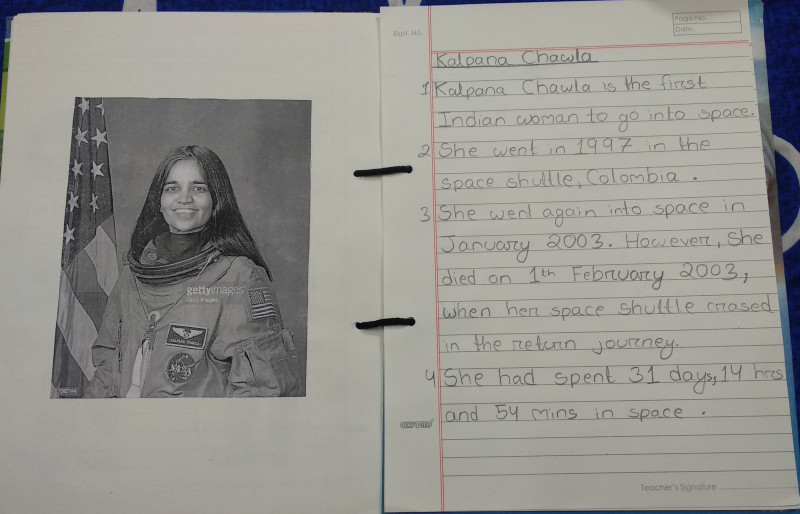 gettyimages
Getty Images
KALPANA CHAWLA
NASA
Expt. No.
Page No.
Date.
Kalpana Chawla
1 Kalpana Chawla is the first
Indian woman to go into space.
2 She went in 1997 in the
space shuttle, Colombia .
3 She went again into space in
January 2003. However, she
died on 1th February 2003,
when her space shuttle crrased
in the return journey.
4 She had spent 31 days, 14 hrs
and 54 mins in space .
Teacher's Signature